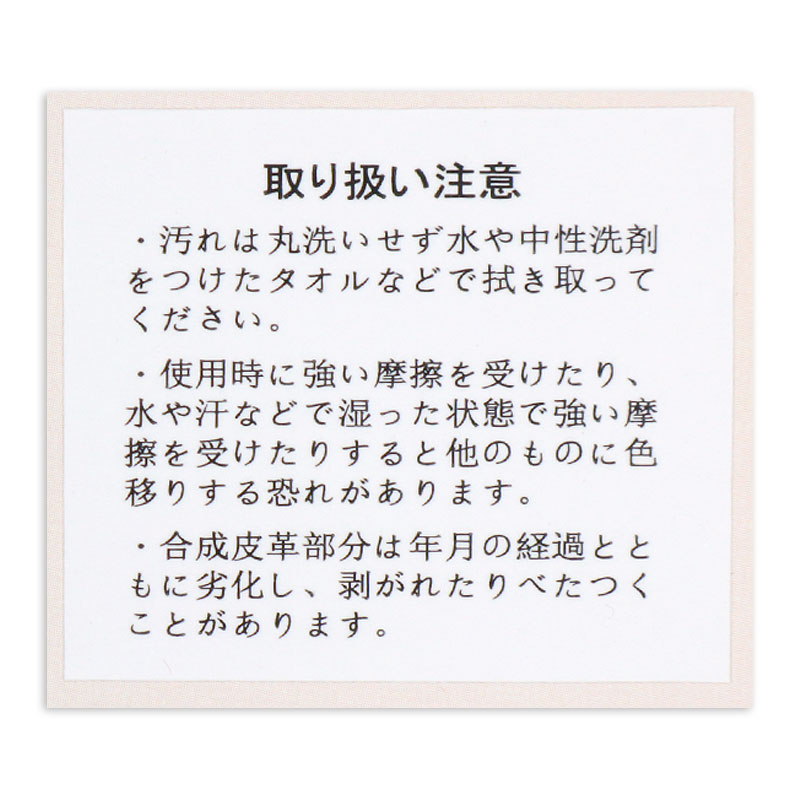 取り扱い注意
・汚れは丸洗いせず水や中性洗剤
をつけたタオルなどで拭き取って
ください。
・使用時に強い摩擦を受けたり、
水や汗などで湿った状態で強い摩
擦を受けたりすると他のものに色
移りする恐れがあります。
・合成皮革部分は年月の経過とと
もに劣化し、剥がれたりべたつく
ことがあります。